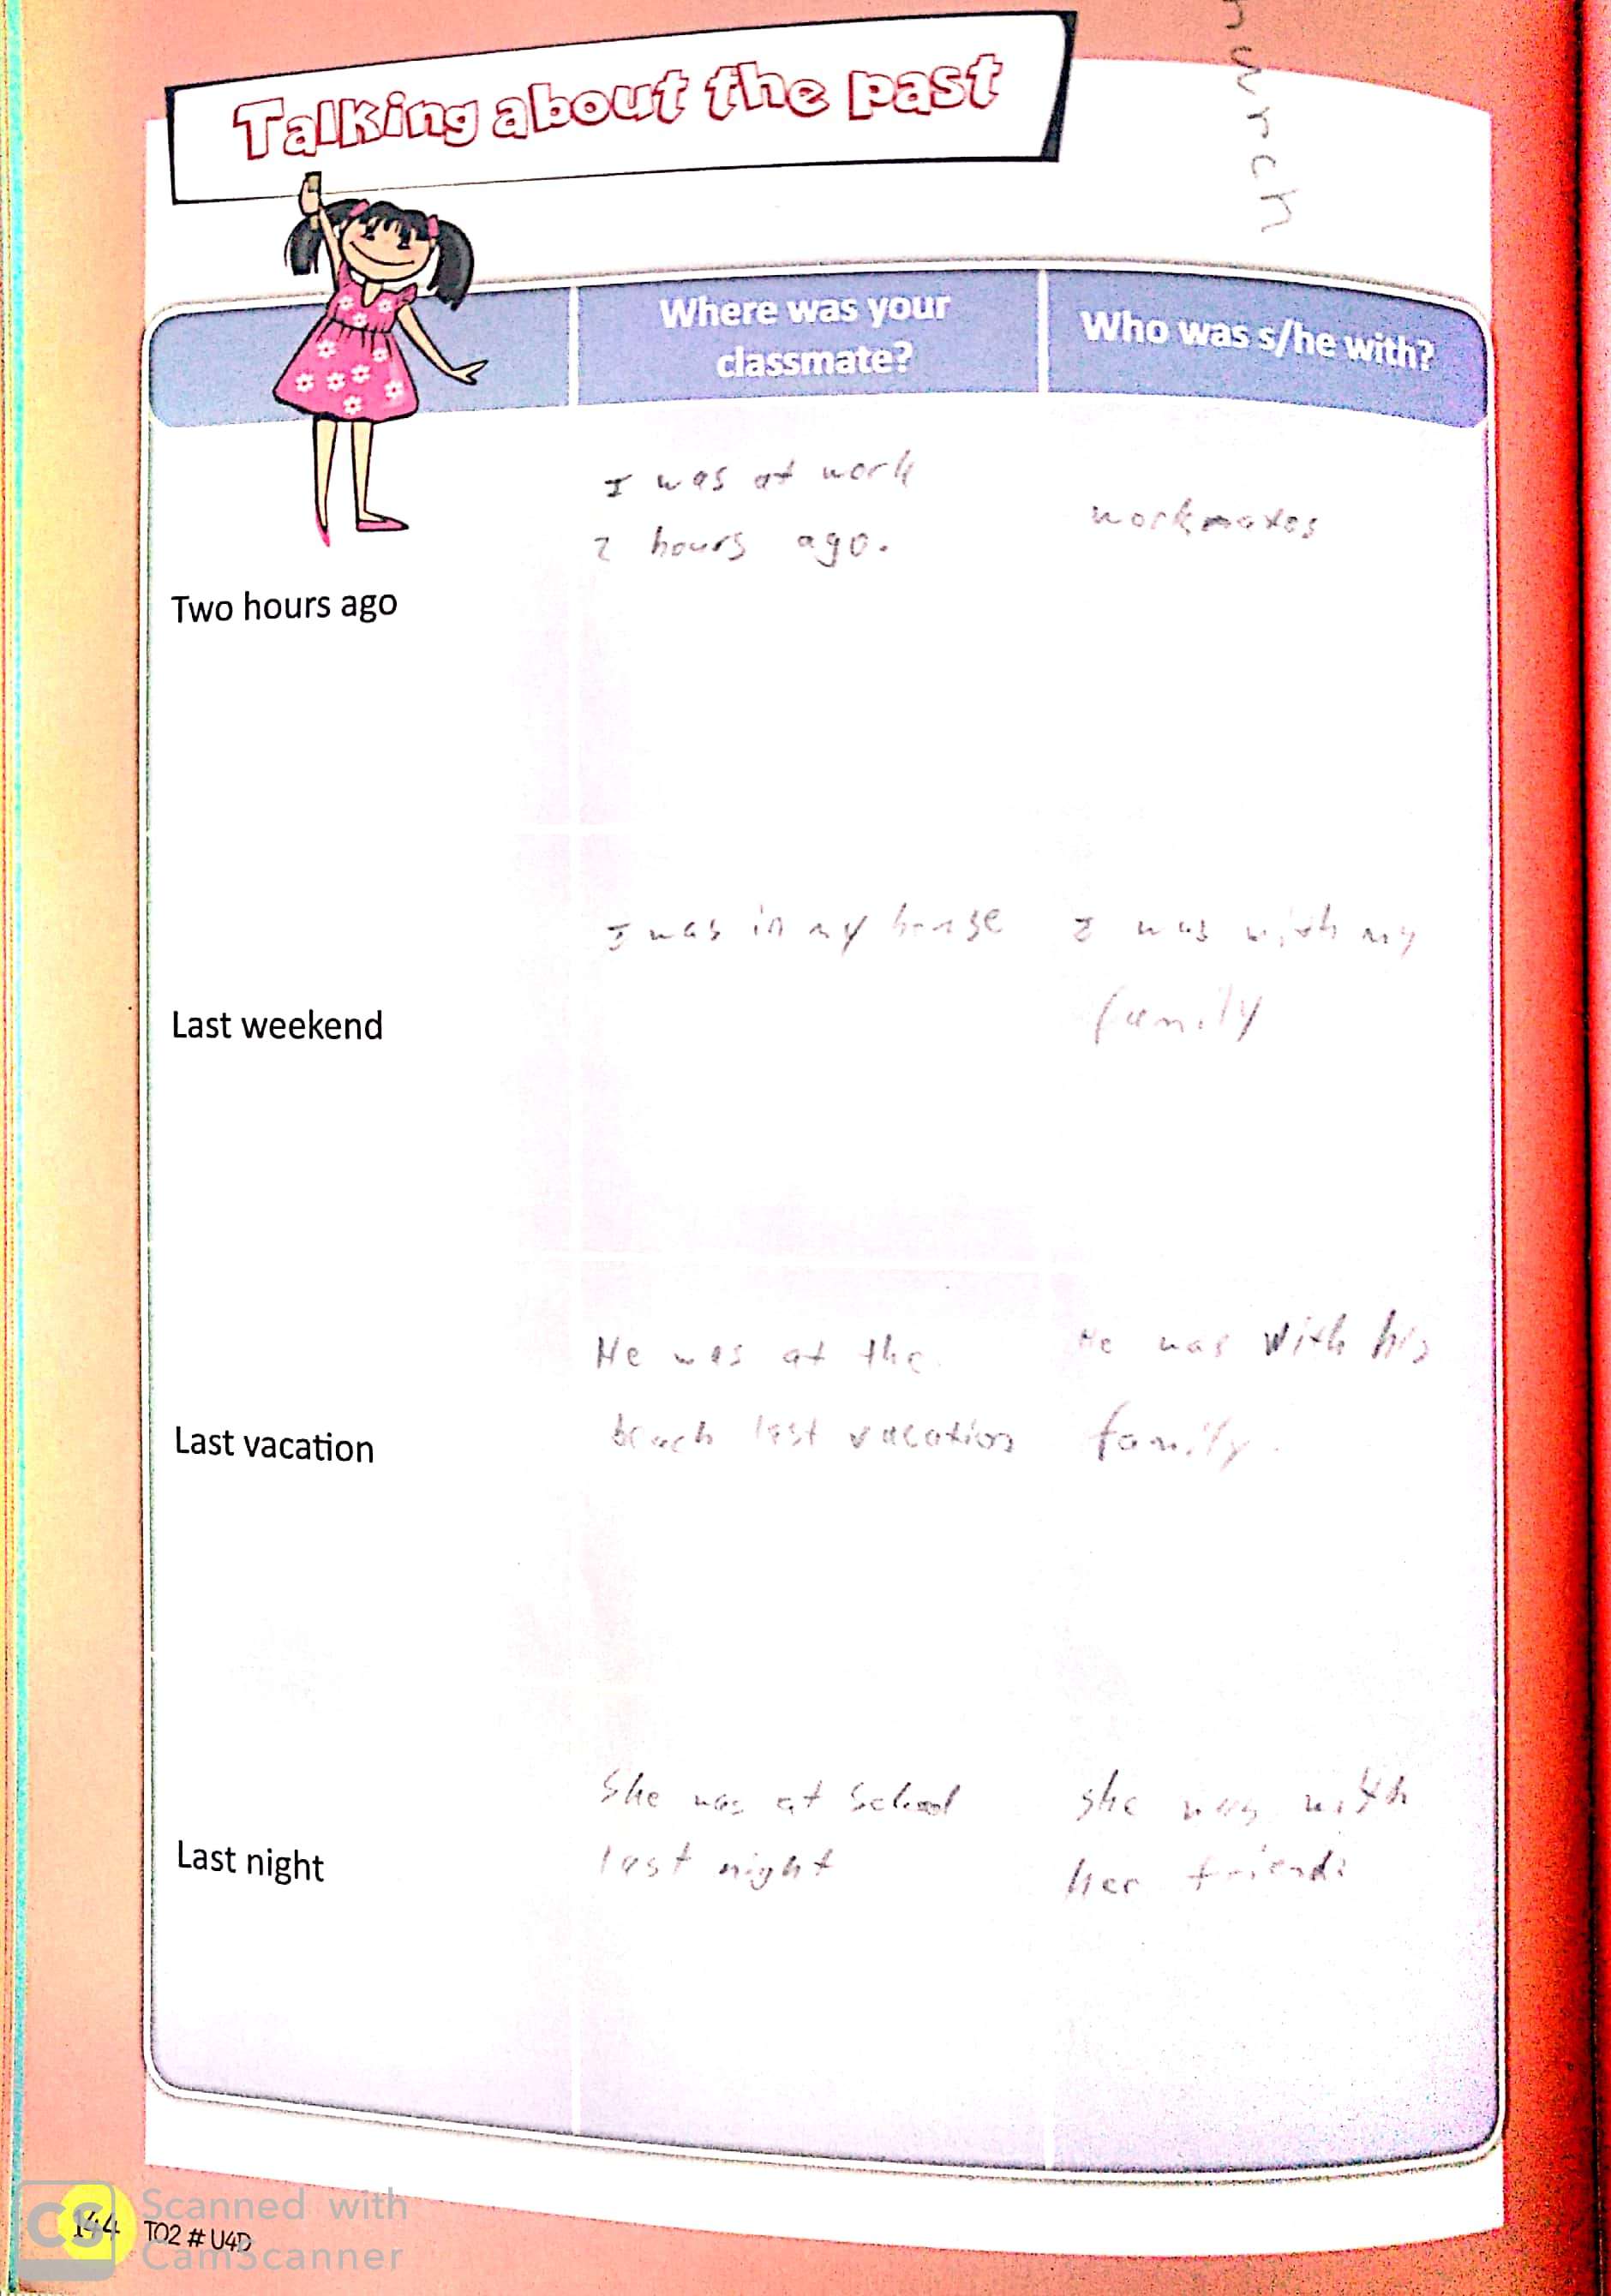 Talking about the past
Where was your
classmate?
Who was s/he with?
I was at work
2 hours ago.
workmates
Two hours ago
I was in my house
I was with my
family
Last weekend
He was at the
beach last vacation
He was with his
family.
Last vacation
She was at school
last night
she was with
her friends
Last night
144 TO2 # U4D
CS
Scanned with
CamScanner